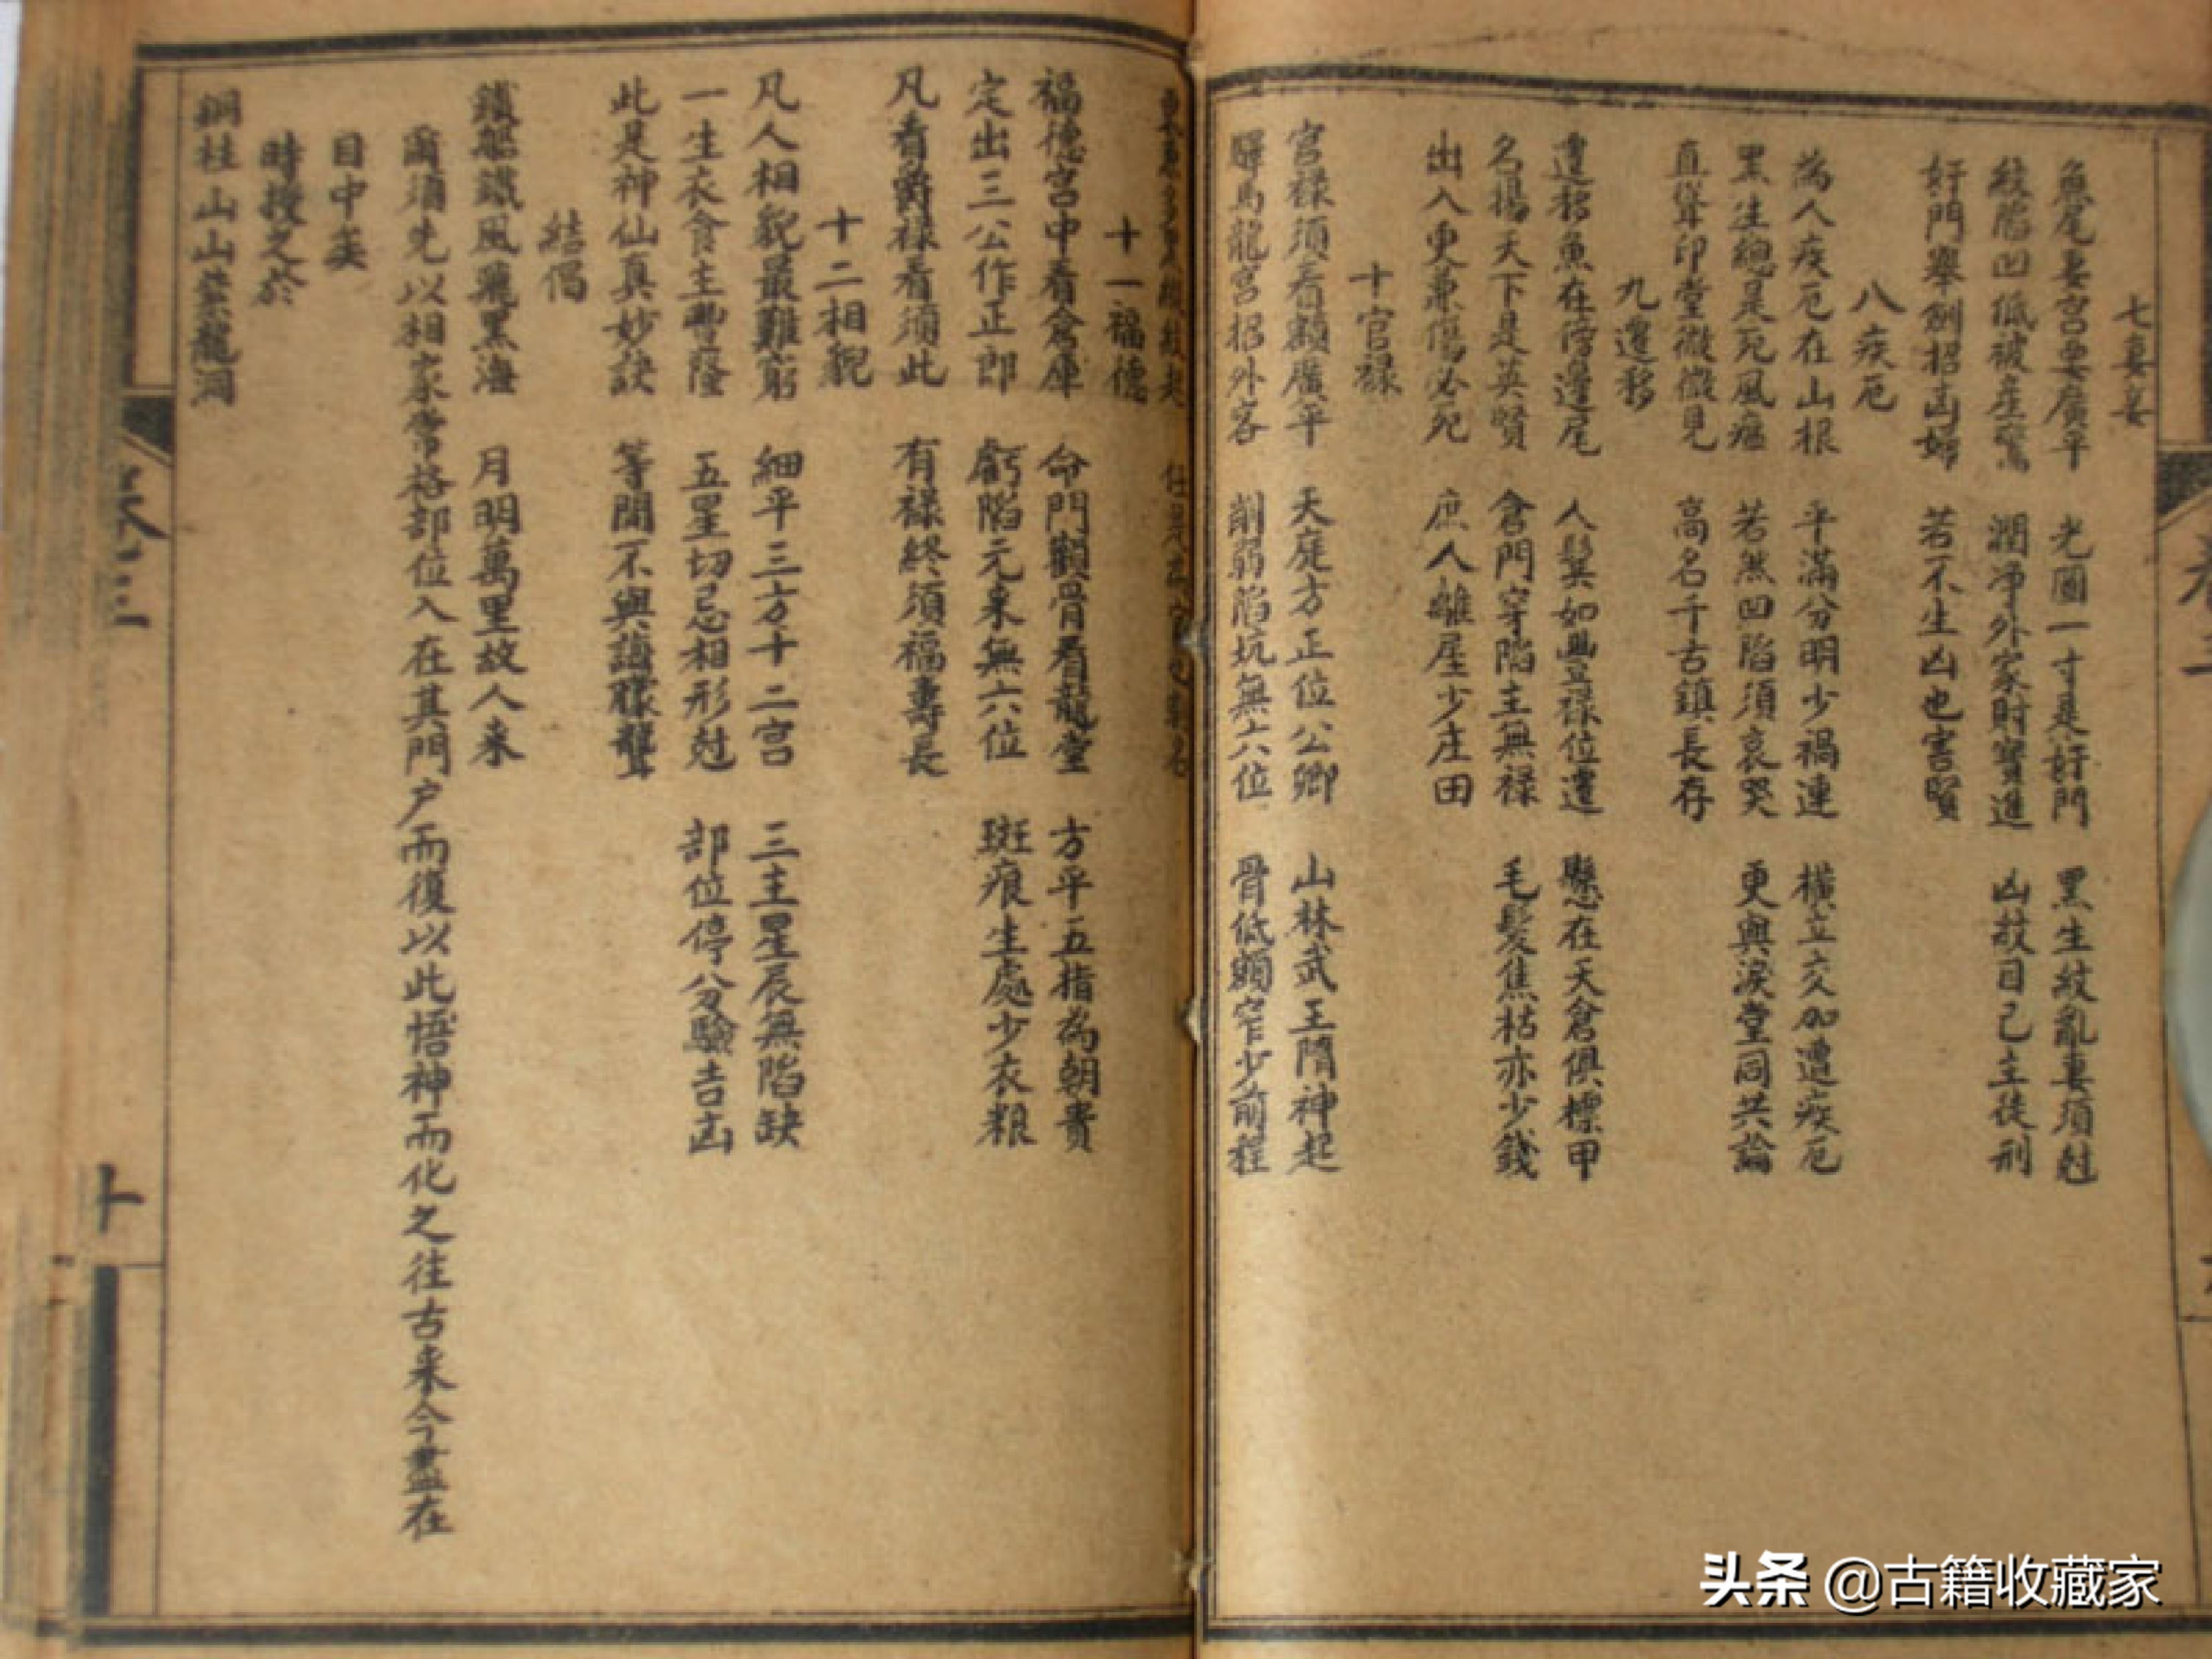 七妻妾
魚尾妻宮要廣平 光圓一寸是奸門 黑生紋亂妻須尅
紋陷凹低被產驚 潤净外家財寶進 凶敖目己主徒刑
奸門舉劍招凶婦 若不生凶也害賢
八疾厄
為人疾厄在山根 平滿分明少禍連 橫立交加遭疾厄
黑生總是死風瘟 若然凹陷須哀哭 更與淚堂同共論
直聳印堂微微見 高名千古鎮長存
九遷移
遷移魚在傍邊尾 人髮如畫祿位遷 懸在天倉俱標甲
名揚天下是英賢 倉門穿陷主無祿 毛髮焦枯亦少錢
出入更兼傷必死 庶人離屋少庄田
十官祿
宮祿須看額廣平 天庭方正位公卿 山林武王隋神起
驛馬龍宮招外客 削弱陷坑無六位 骨低額窄少前程
十一福德
福德宮中看倉庫 命門顴骨看龍堂 方平五指為朝貴
定出三公作正郎 虧陷元來無六位 斑痕生處少衣粮
凡看爵祿看須此 有祿終須福壽長
十二相貌
凡人相貌最難窮 細平三方十二宮 三主星辰無陷缺
一生衣食主豐隆 五星切忌相形尅 部位停分驗吉凶
此是神仙真妙訣 等閒不與講矇聾
結偈
鐵船鐵風飛黑海 月明萬里故人來
爾須先以相家常格部位入在其門户而復以此悟神而化之往古来今盡在
目中矣
時授之於
銅柱山山紫龍洞
卷三
十
头条 @古籍收藏家